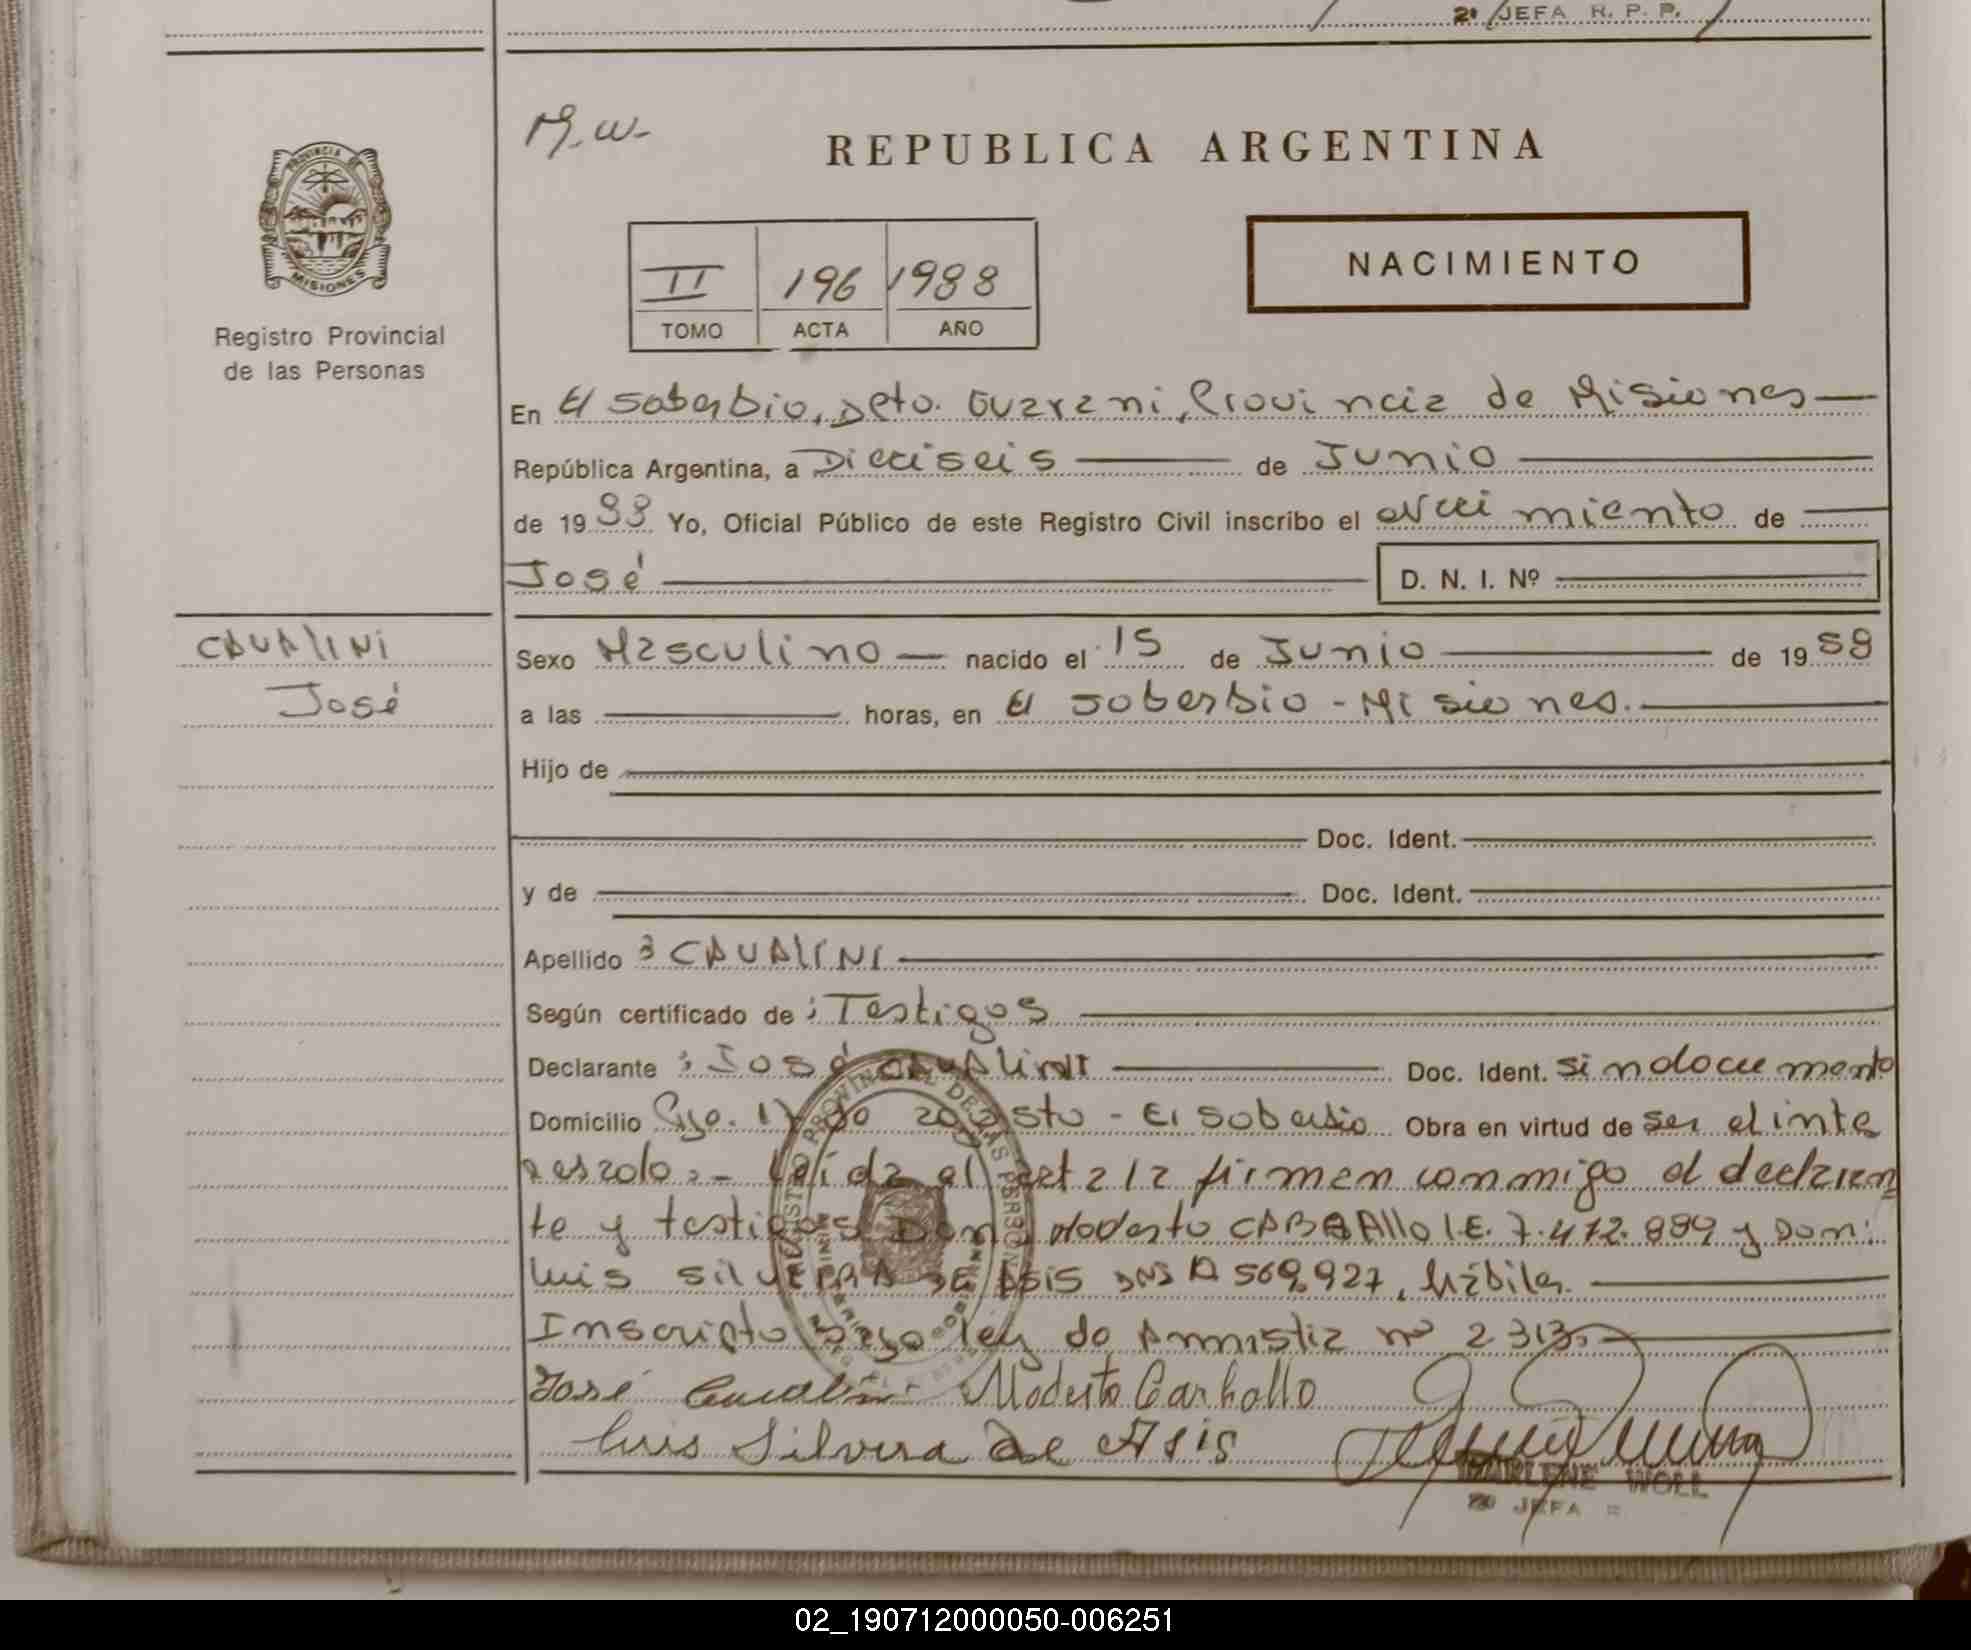 2º JEFA R. P. P.
M.W.
REPUBLICA ARGENTINA
PROVINCIA DE
MISIONES
Registro Provincial
de las Personas
NACIMIENTO
II 196 1988
TOMO ACTA AÑO
En El Soberbio, Dpto. Guarani, Provincia de Misiones
República Argentina, a Dieciseis de Junio
de 1988 Yo, Oficial Público de este Registro Civil inscribo el Nacimiento de
José D. N. I. Nº
CAVAlINI
José
Sexo Masculino nacido el 15 de Junio de 1959
a las horas, en El Soberbio - Misiones.
Hijo de
Doc. Ident.
y de Doc. Ident.
Apellido : CAVAlINI
Según certificado de : Testigos
Declarante : José CAVAlINI Doc. Ident. sin documento
Domicilio Pje. 17 de agosto - El Soberbio Obra en virtud de ser el inte
resado. - Leída el acta la firman conmigo el declaran
te y testigos Don: Modesto CARBAllo l.E. 7.472.889 y Don:
Luis SILVEIRA DE ASIS DNI A 569.927, hábiles.
Inscripto bajo ley de Amnistia nº 2313.
José Cavalini Modesto Carballo
Luis Silvera De Asis
MARLENE WOLL
2º JEFA
02_190712000050-006251